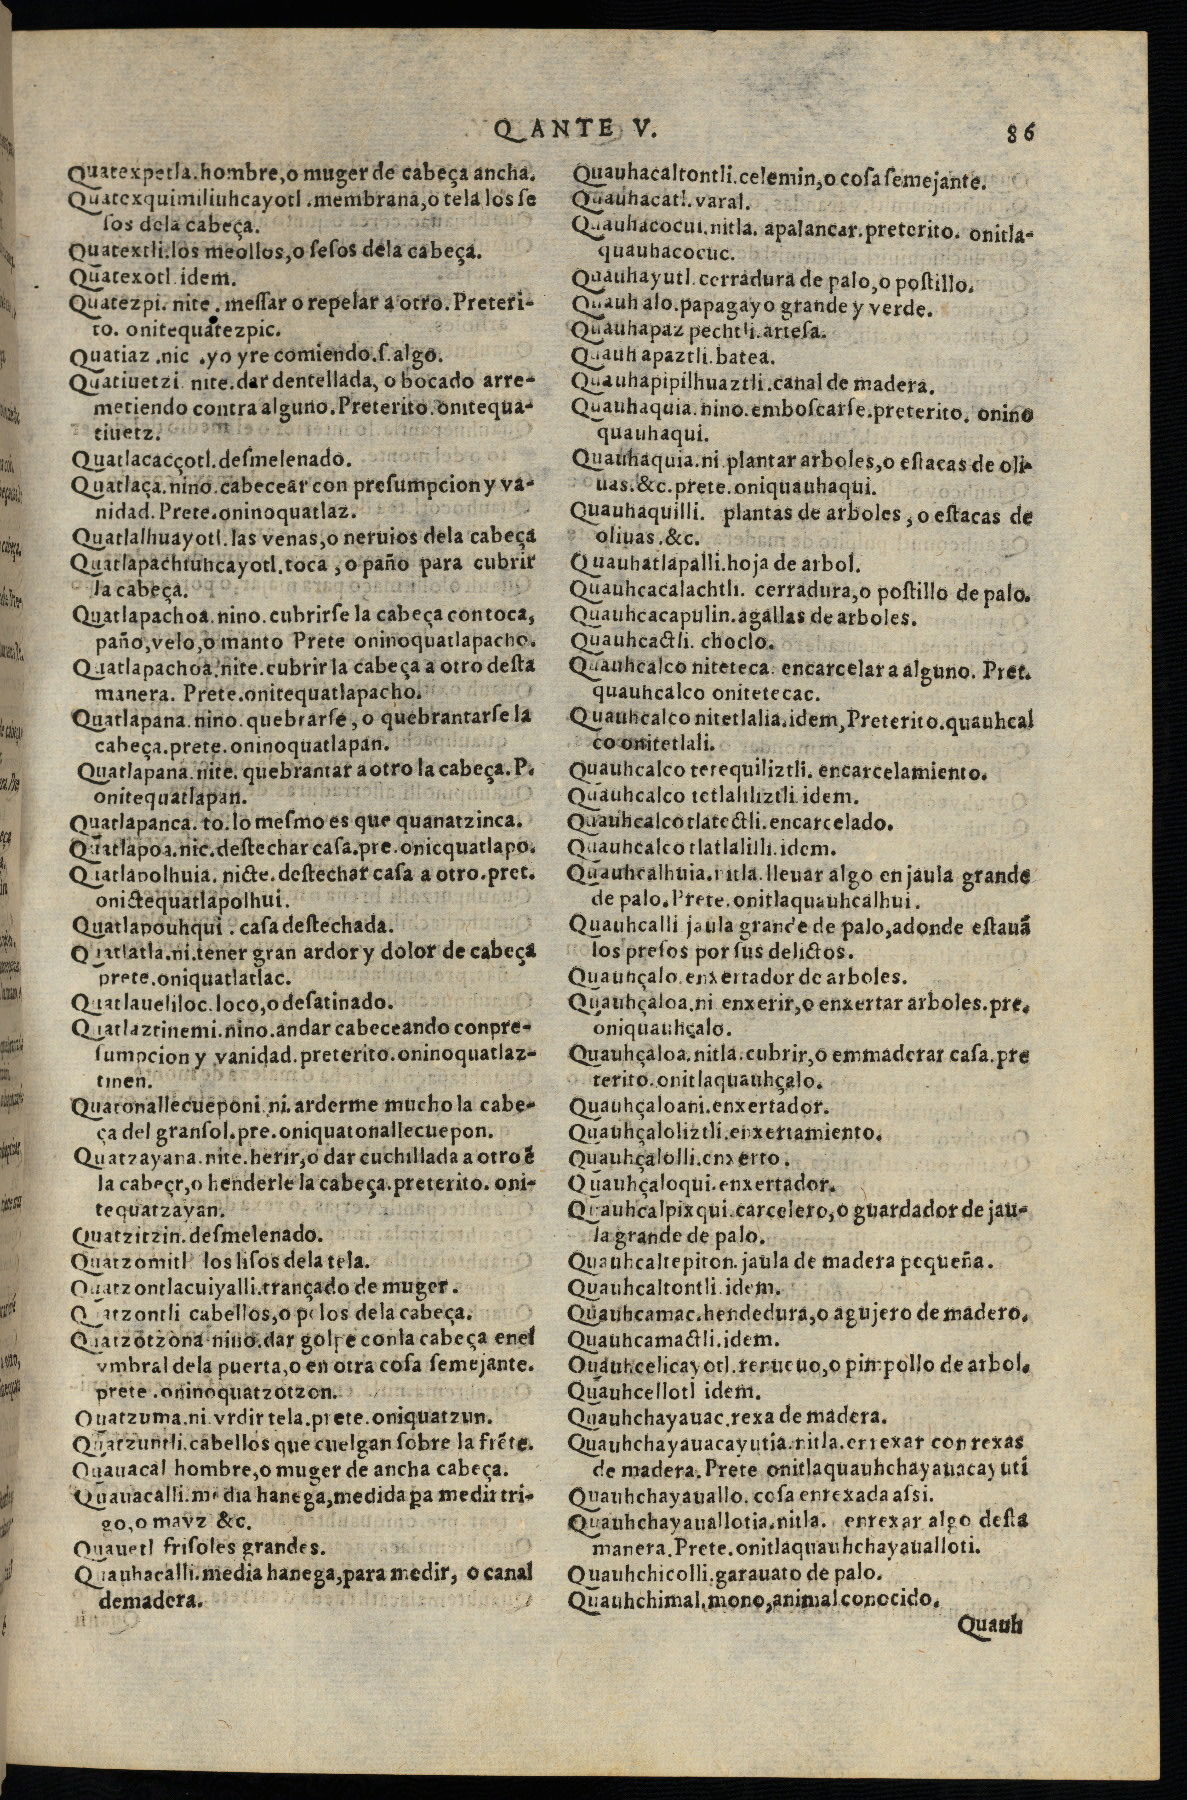 Q ANTE V.
86
Quatexpetla.hombre,o muger de cabeça ancha.
Quatexquimiliuhcayotl .membrana,o tela los se
sos dela cabeça.
Quatextli.los meollos,o sesos dela cabeça.
Quatexotl idem.
Quatezpi. nite . messar o repelar a otro. Preteri-
to. onitequatezpic.
Quatiaz .nic .yo yre comiendo.s.algo.
Quatiuetzi nite.dar dentellada, o bocado arre-
metiendo contra alguno.Preterito.onitequa-
tiuetz.
Quatlacacçotl.desmelenado.
Quatlaça.nino.cabecear con presumpcion y va-
nidad.Prete.oninoquatlaz.
Quatlalhuayotl.las venas,o neruios dela cabeça
Quatlapachiuhcayotl.toca ,o paño para cubrir
la cabeça.
Quatlapachoa.nino.cubrirse la cabeça con toca,
paño,velo,o manto Prete oninoquatlapacho.
Quatlapachoa.nite.cubrir la cabeça a otro desta
manera. Prete.onitequatlapacho.
Quatlapana.nino.quebrarse,o quebrantarse la
cabeça.prete.oninoquatlapan.
Quatlapana.nite.quebrantar a otro la cabeça.P.
onitequatlapan.
Quatlapanca.to.lo mesmo es que quanatzinca.
Quatlapoa.nic.destechar casa.pre.onicquatlapo.
Quatlapolhuia.nicte.destechar casa a otro.pret.
onictequatlapolhui.
Quatlapouhqui . casa destechada.
Quatlatla.ni.tener gran ardor y dolor de cabeça
prete.oniquatlatlac.
Quatlaueliloc.loco,o desatinado.
Quatlaztinemi.nino.andar cabeceando con pre-
sumpcion y vanidad.preterito.oninoquatlaz-
tinen.
Quatonallecueponi.ni.arderme mucho la cabe-
ça del gran sol.pre.oniquatonallecuepon.
Quatzayana.nite.herir,o dar cuchillada a otro ē
la cabeçr,o henderle la cabeça.preterito.oni-
tequatzayan.
Quatzitzin.desmelenado.
Quatzomitl los lisos dela tela.
Quatzontlacuiyalli.trançado de muger.
Quatzontli cabellos,o pelos dela cabeça.
Quatzotzona nino.dar golpe con la cabeça enel
vmbral dela puerta,o en otra cosa semejante.
prete.oninoquatzotzon.
Quatzuma.ni.vrdir tela.prete.oniquatzun.
Quatzuntli.cabellos que cuelgan sobre la frēte.
Quauacal hombre,o muger de ancha cabeça.
Quauacalli.media hanega,medida pa medir tri-
go,o mayz &c.
Quauetl frisoles grandes.
Quauhacalli.media hanega,para medir, o canal
demadera.
Quauhacaltontli.celemin,o cosa semejante.
Quauhacatl.varal.
Quauhacocui.nitla. apalancar.preterito. onitla-
quauhacocuc.
Quauhayutl.cerradura de palo,o postillo.
Quauhalo.papagayo grande y verde.
Quauhapaz pechtli.artesa.
Quauhapaztli.batea.
Quauhapipilhuaztli.canal de madera.
Quauhaquia.nino.emboscarse.preterito. onino
quauhaqui.
Quauhaquia.ni.plantar arboles,o estacas de oli-
uas.&c.prete.oniquauhaqui.
Quauhaquilli. plantas de arboles,o estacas de
oliuas.&c.
Quauhatlapalli.hoja de arbol.
Quauhcacalachtli. cerradura,o postillo de palo.
Quauhcacapulin.agallas de arboles.
Quauhcactli. choclo.
Quauhcalco niteteca. encarcelar a alguno. Pret.
quauhcalco onitetecac.
Quauhcalco nitetlalia.idem,Preterito.quauhcal
co onitetlali.
Quauhcalco tetequiliztli. encarcelamiento.
Quauhcalco tetlaliliztli.idem.
Quauhcalco tlatectli.encarcelado.
Quauhcalco tlatlalilli.idem.
Quauhcalhuia.nitla.lleuar algo en jaula grande
de palo.Prete.onitlaquauhcalhui.
Quauhcalli jaula grande de palo,adonde estauā
los presos por sus delictos.
Quauhçalo.enxertador de arboles.
Quauhçaloa.ni enxerir,o enxertar arboles.pre.
oniquauhçalo.
Quauhçaloa.nitla.cubrir,o emmaderar casa.pre
terito.onitlaquauhçalo.
Quauhçaloani.enxertador.
Quauhçaloliztli.enxertamiento.
Quauhçalolli.enxerto.
Quauhçaloqui.enxertador.
Quauhcalpixqui.carcelero,o guardador de jau-
la grande de palo.
Quauhcaltepiton.jaula de madera pequeña.
Quauhcaltontli.idem.
Quauhcamac.hendedura,o agujero de madero.
Quauhcamactli.idem.
Quauhcelicayotl.renueuo,o pimpollo de arbol.
Quauhcellotl idem.
Quauhchayauac.rexa de madera.
Quauhchayauacayutia.nitla.enrexar con rexas
de madera.Prete onitlaquauhchayauacayuti
Quauhchayauallo.cosa enrexada assi.
Quauhchayauallotia.nitla. enrexar algo desta
manera.Prete.onitlaquauhchayaualloti.
Quauhchicolli.garauato de palo.
Quauhchimal.mono,animal conocido.
Quauh